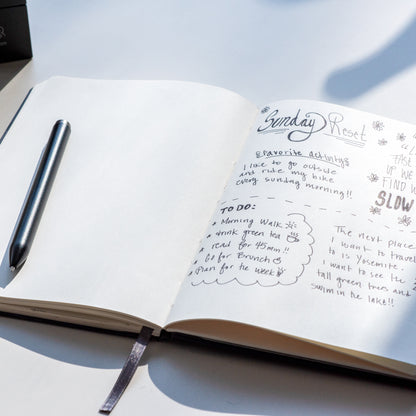 Sunday Reset
Favorite activity
I like to go outside
and ride my bike
every sunday morning!!
TO DO:
Morning Walk
drink green tea
read for 45min!!
Go for Brunch
Plan for the week
TAKE
UP WE
FIND
SLOW
The next place
I want to travel
to is Yosemite.
I want to see the
tall green trees and
swim in the lake!!